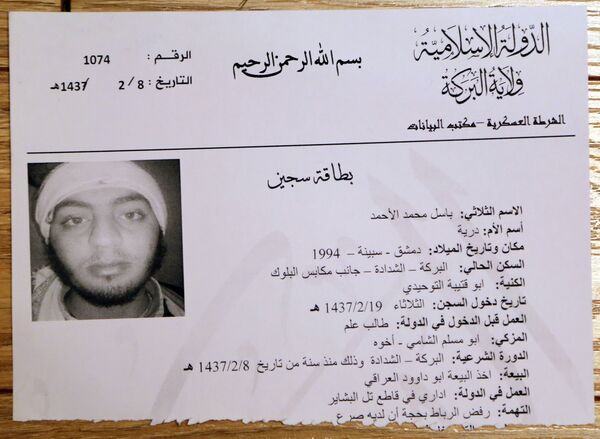 الدولة الإسلامية
ولاية البركة
الشرطة العسكرية – مكتب البيانات
بسم الله الرحمن الرحيم
الرقم : 1074
التاريخ : 8 / 2 /1437هـ
بطاقة سجين
الاسم الثلاثي: باسل محمد الأحمد
أسم الأم: درية
مكان وتاريخ الميلاد: دمشق - سبينة – 1994
السكن الحالي: البركة – الشدادة – جانب مكابس البلوك
الكنية: ابو قتيبة التوحيدي
تاريخ دخول السجن: الثلاثاء 1437/2/19 هـ
العمل قبل الدخول في الدولة: طالب علم
المزكي: ابو مسلم الشامي - أخوه
الدورة الشرعية: البركة – الشدادة وذلك منذ سنة من تاريخ 1437/2/8 هـ
البيعة: اخذ البيعة ابو داوود العراقي
العمل في الدولة: اداري في قاطع تل البشاير
التهمة: رفض الرباط بحجة أن لديه صرع